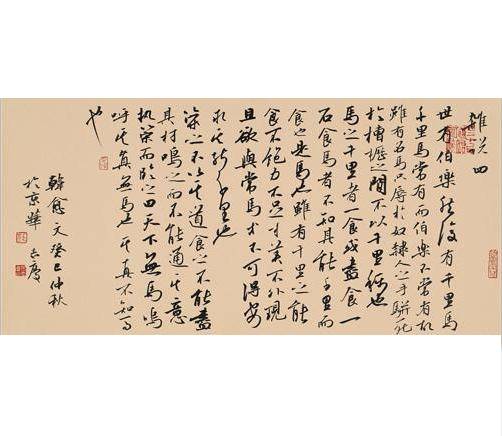 雜说四
世有伯樂然後有千里馬
千里馬常有而伯樂不常有故
雖有名馬只辱於奴隸人之手駢死
於槽櫪之間不以千里稱也
馬之千里者一食或盡食一
石食馬者不知其能千里而
食之是馬也雖有千里之能
食不飽力不足才美不外現
且欲與常馬等不可得安
求其能千里也
策之不以其道食之不能盡
其材鳴之而不能通其意
执策而临之曰天下無馬嗚
呼其真無馬也其真不知馬
也
韓愈文癸巳仲秋
於京華